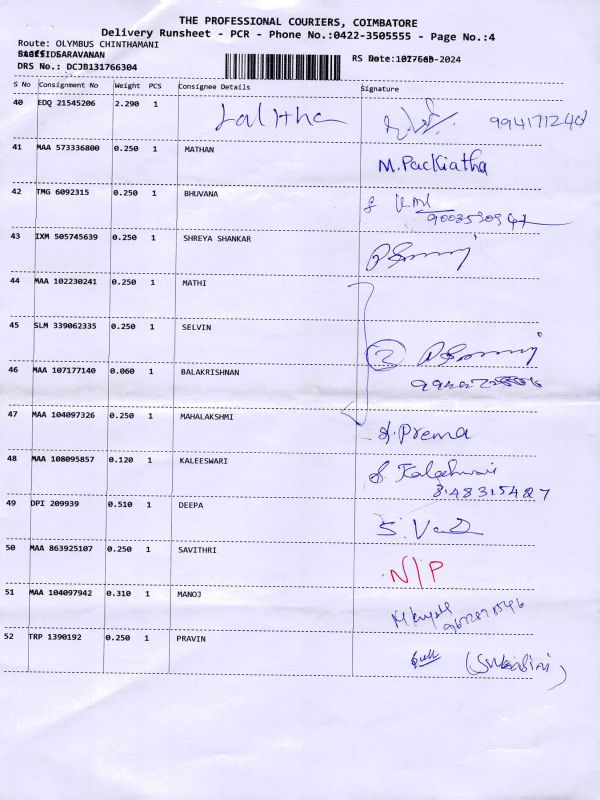 THE PROFESSIONAL COURIERS, COIMBATORE
Delivery Runsheet - PCR - Phone No.:0422-3505555 - Page No.:4
Route: OLYMBUS CHINTHAMANI
SARAVANAN
DRS No.: DCJB131766304
RS No
-2024
S No Consignment No Weight PCS Consignee Details Signature
40 EDQ 21545206 2.290 1 Lalitha 994171240
41 MAA 573336800 0.250 1 MATHAN M.Packiatha
42 TMG 6092315 0.250 1 BHUVANA
43 IXM 505745639 0.250 1 SHREYA SHANKAR
44 MAA 102230241 0.250 1 MATHI
45 SLM 339062335 0.250 1 SELVIN
2
46 MAA 107177140 0.060 1 BALAKRISHNAN
47 MAA 104097326 0.250 1 MAHALAKSHMI
Prema
48 MAA 108095857 0.120 1 KALEESWARI
49 DPI 209939 0.510 1 DEEPA
50 MAA 863925107 0.250 1 SAVITHRI
N/P
51 MAA 104097942 0.310 1 MANOJ
52 TRP 1390192 0.250 1 PRAVIN